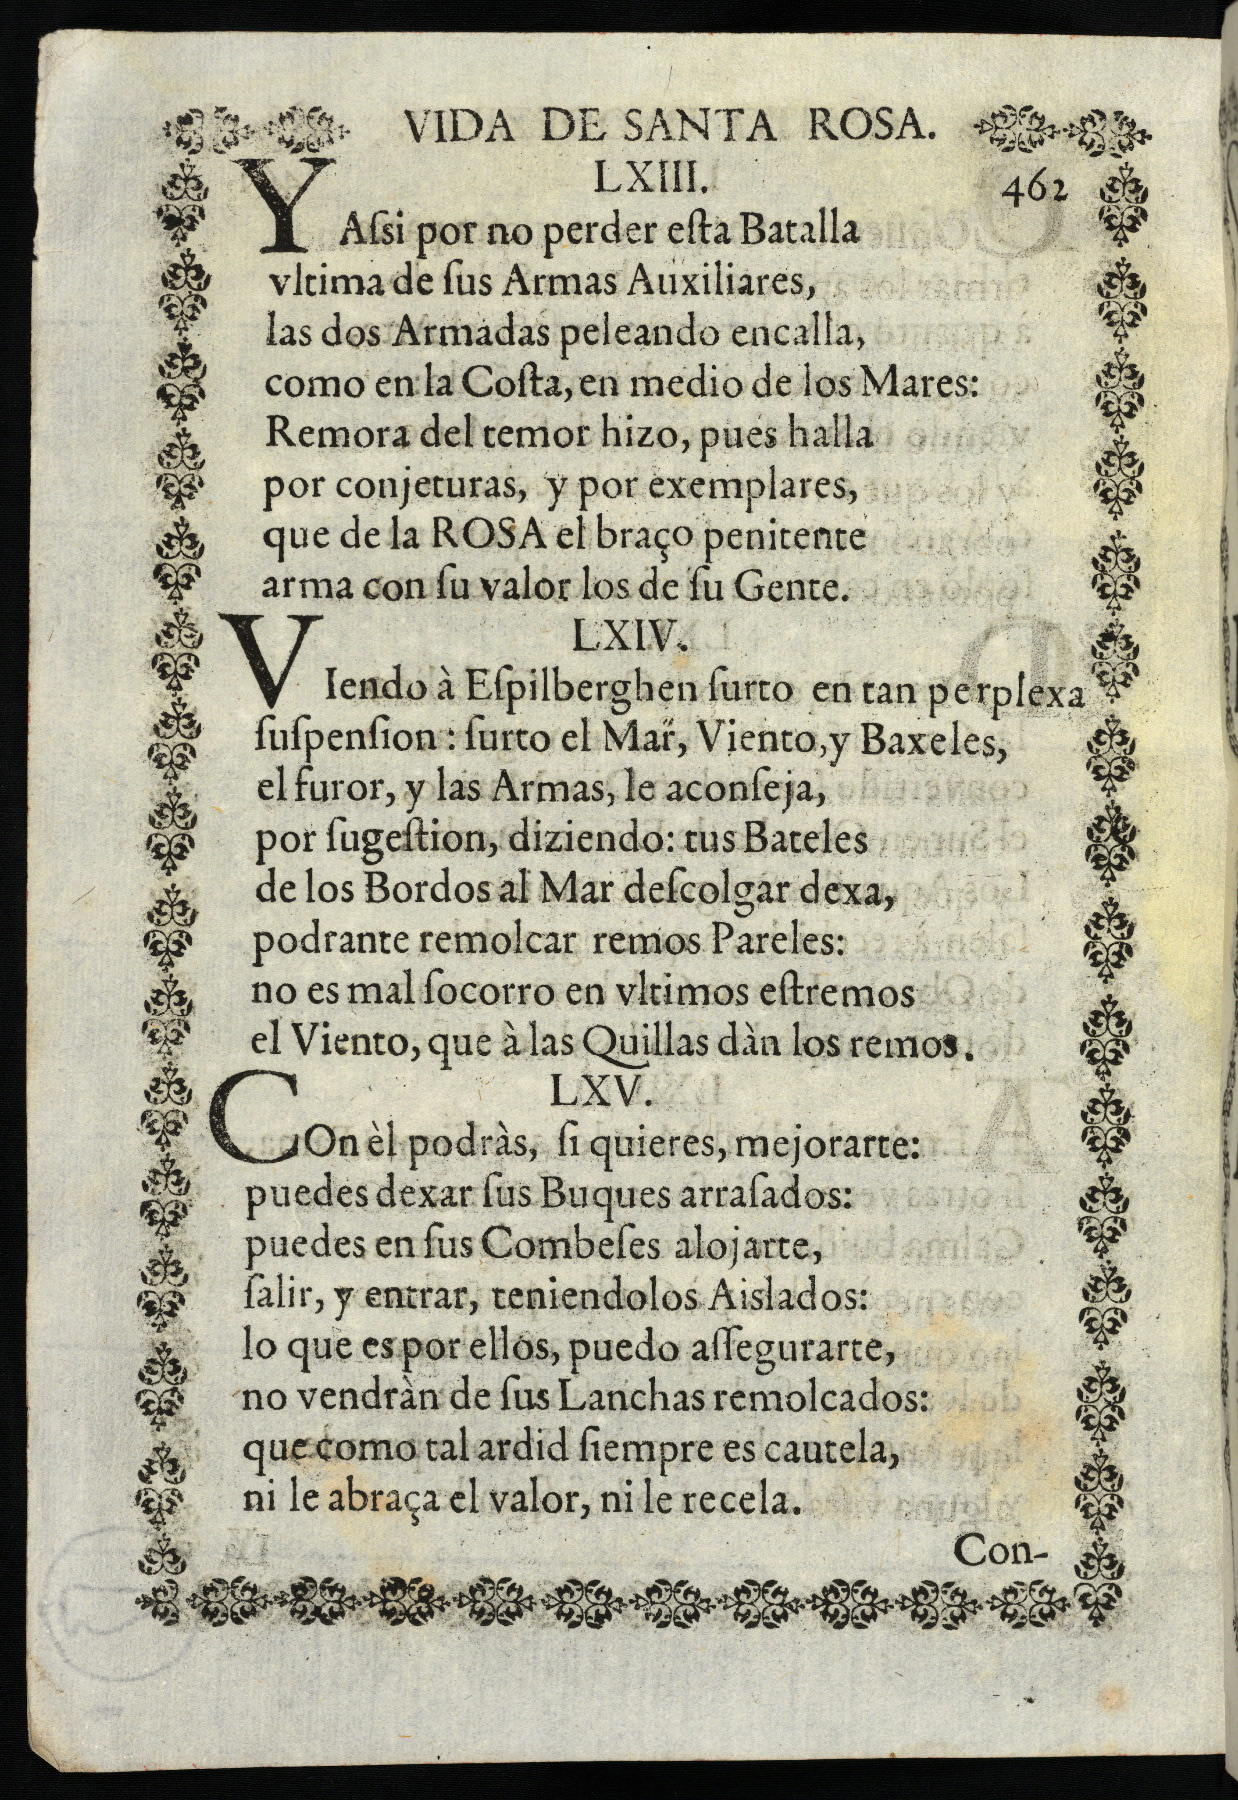 VIDA DE SANTA ROSA.
LXIII.
462
YAſsi por no perder eſta Batalla
vltima de ſus Armas Auxiliares,
las dos Armadas peleando encalla,
como en la Coſta, en medio de los Mares:
Remora del temor hizo, pues halla
por conjeturas, y por exemplares,
que de la ROSA el braço penitente
arma con ſu valor los de ſu Gente.
LXIV.
VIendo à Eſpilberghen ſurto en tan perplexa
ſuſpenſion: ſurto el Mar, Viento, y Baxeles,
el furor, y las Armas, le aconſeja,
por ſugeſtion, diziendo: tus Bateles
de los Bordos al Mar deſcolgar dexa,
podrante remolcar remos Pareles:
no es mal ſocorro en vltimos eſtremos
el Viento, que à las Quillas dàn los remos.
LXV.
COn èl podràs, ſi quieres, mejorarte:
puedes dexar ſus Buques arraſados:
puedes en ſus Combeſes alojarte,
ſalir, y entrar, teniendolos Aislados:
lo que es por ellos, puedo aſſegurarte,
no vendràn de ſus Lanchas remolcados:
que como tal ardid ſiempre es cautela,
ni le abraça el valor, ni le recela.
Con-